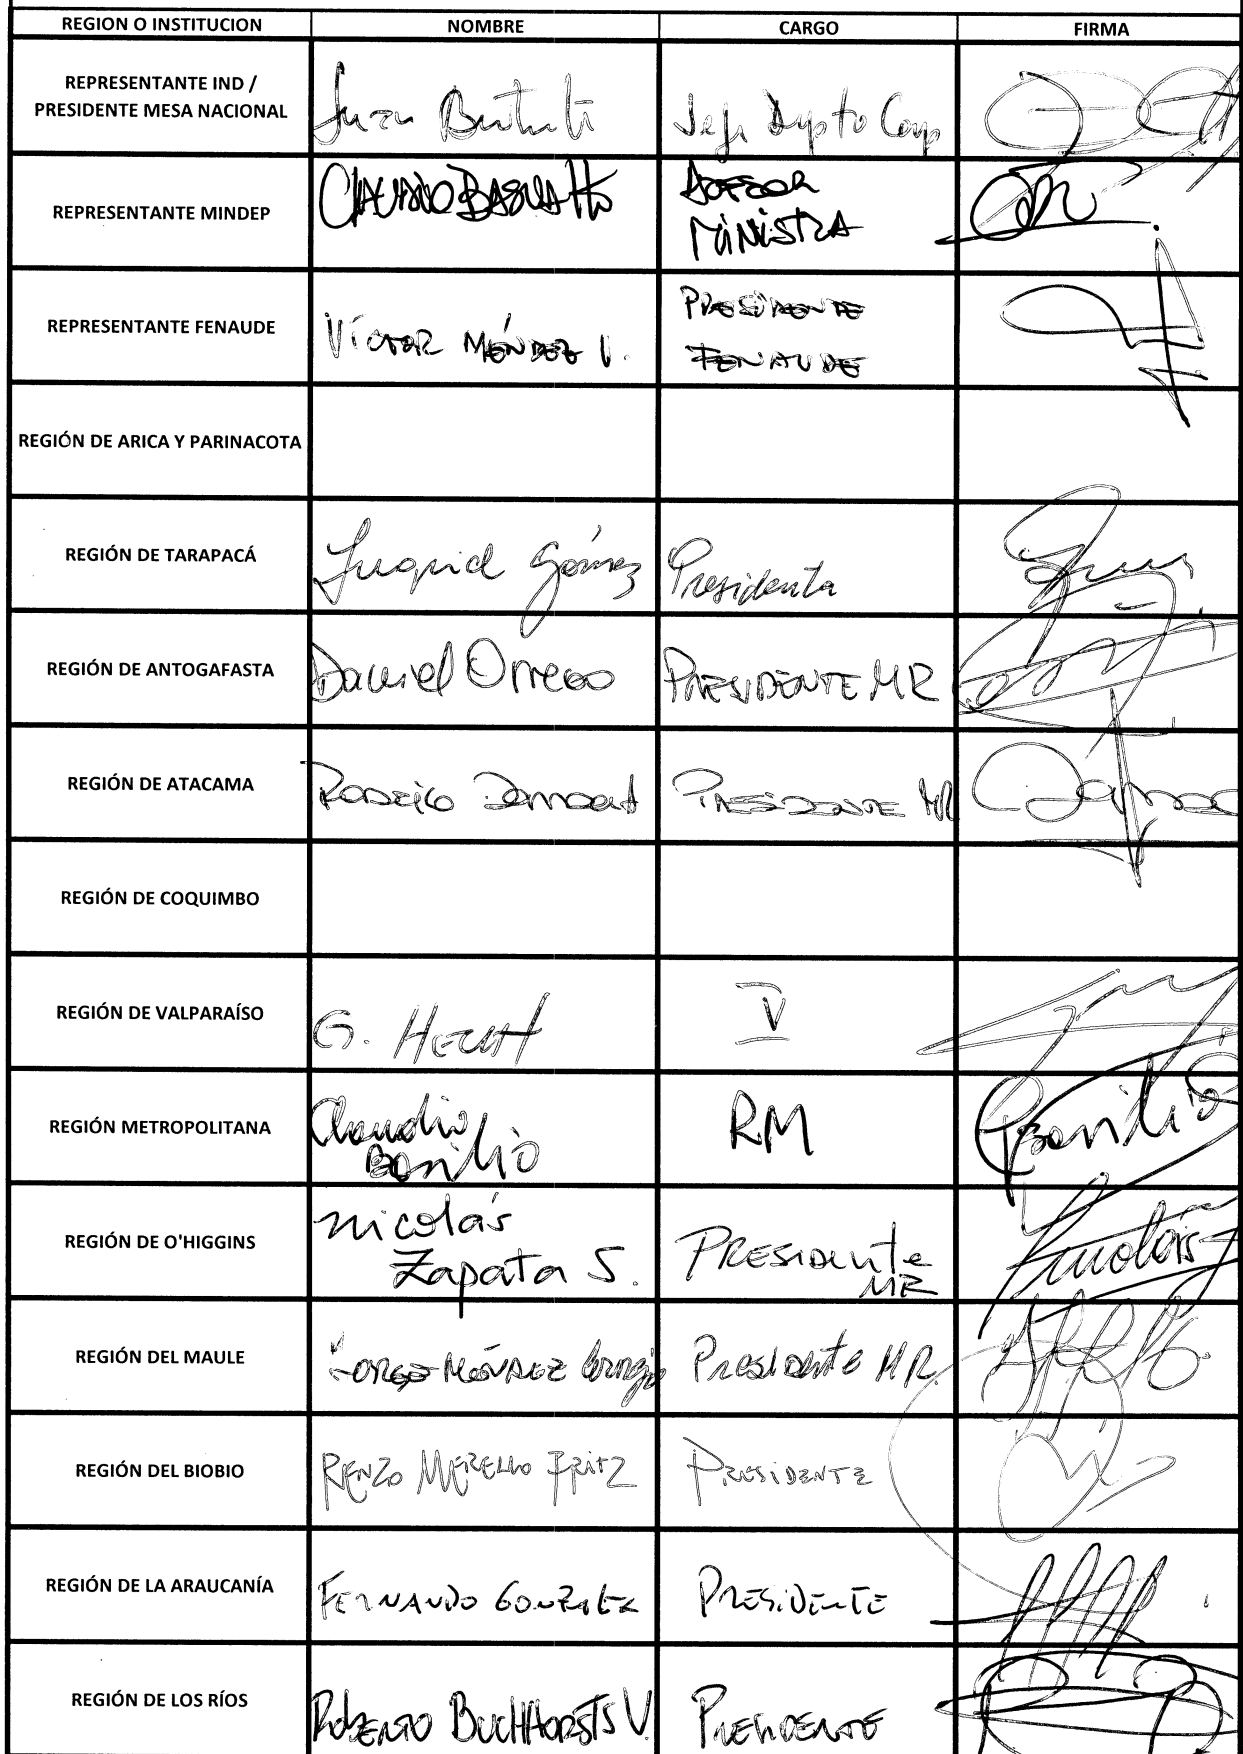 REGION O INSTITUCION NOMBRE CARGO FIRMA
REPRESENTANTE IND /
PRESIDENTE MESA NACIONAL
Juan Jefe Dypto Comp
REPRESENTANTE MINDEP
CLAUDIO BASUALTO ASESOR
MINISTRA
REPRESENTANTE FENAUDE
VÍCTOR MÉNDEZ V. PRESIDENTE
FENAUDE
REGIÓN DE ARICA Y PARINACOTA
REGIÓN DE TARAPACÁ Ingrid Gómez Presidenta
REGIÓN DE ANTOGAFASTA Daniel Orrego PRESIDENTE MR
REGIÓN DE ATACAMA RODRIGO PRESIDENTE MR
REGIÓN DE COQUIMBO
REGIÓN DE VALPARAÍSO G. HECHT V
REGIÓN METROPOLITANA Claudio
Basilio RM Basilio
REGIÓN DE O'HIGGINS nicolás
Zapata S. PRESIDente
MR
REGIÓN DEL MAULE JORGE MÉNDEZ Cornejo Presidente MR.
REGIÓN DEL BIOBIO RENZO MERELLO FRITZ PRESIDENTE
REGIÓN DE LA ARAUCANÍA FERNANDO GONZALEZ PRESIDENTE
REGIÓN DE LOS RÍOS ROBERTO BUCHHORSTS V. PRESIDENTE